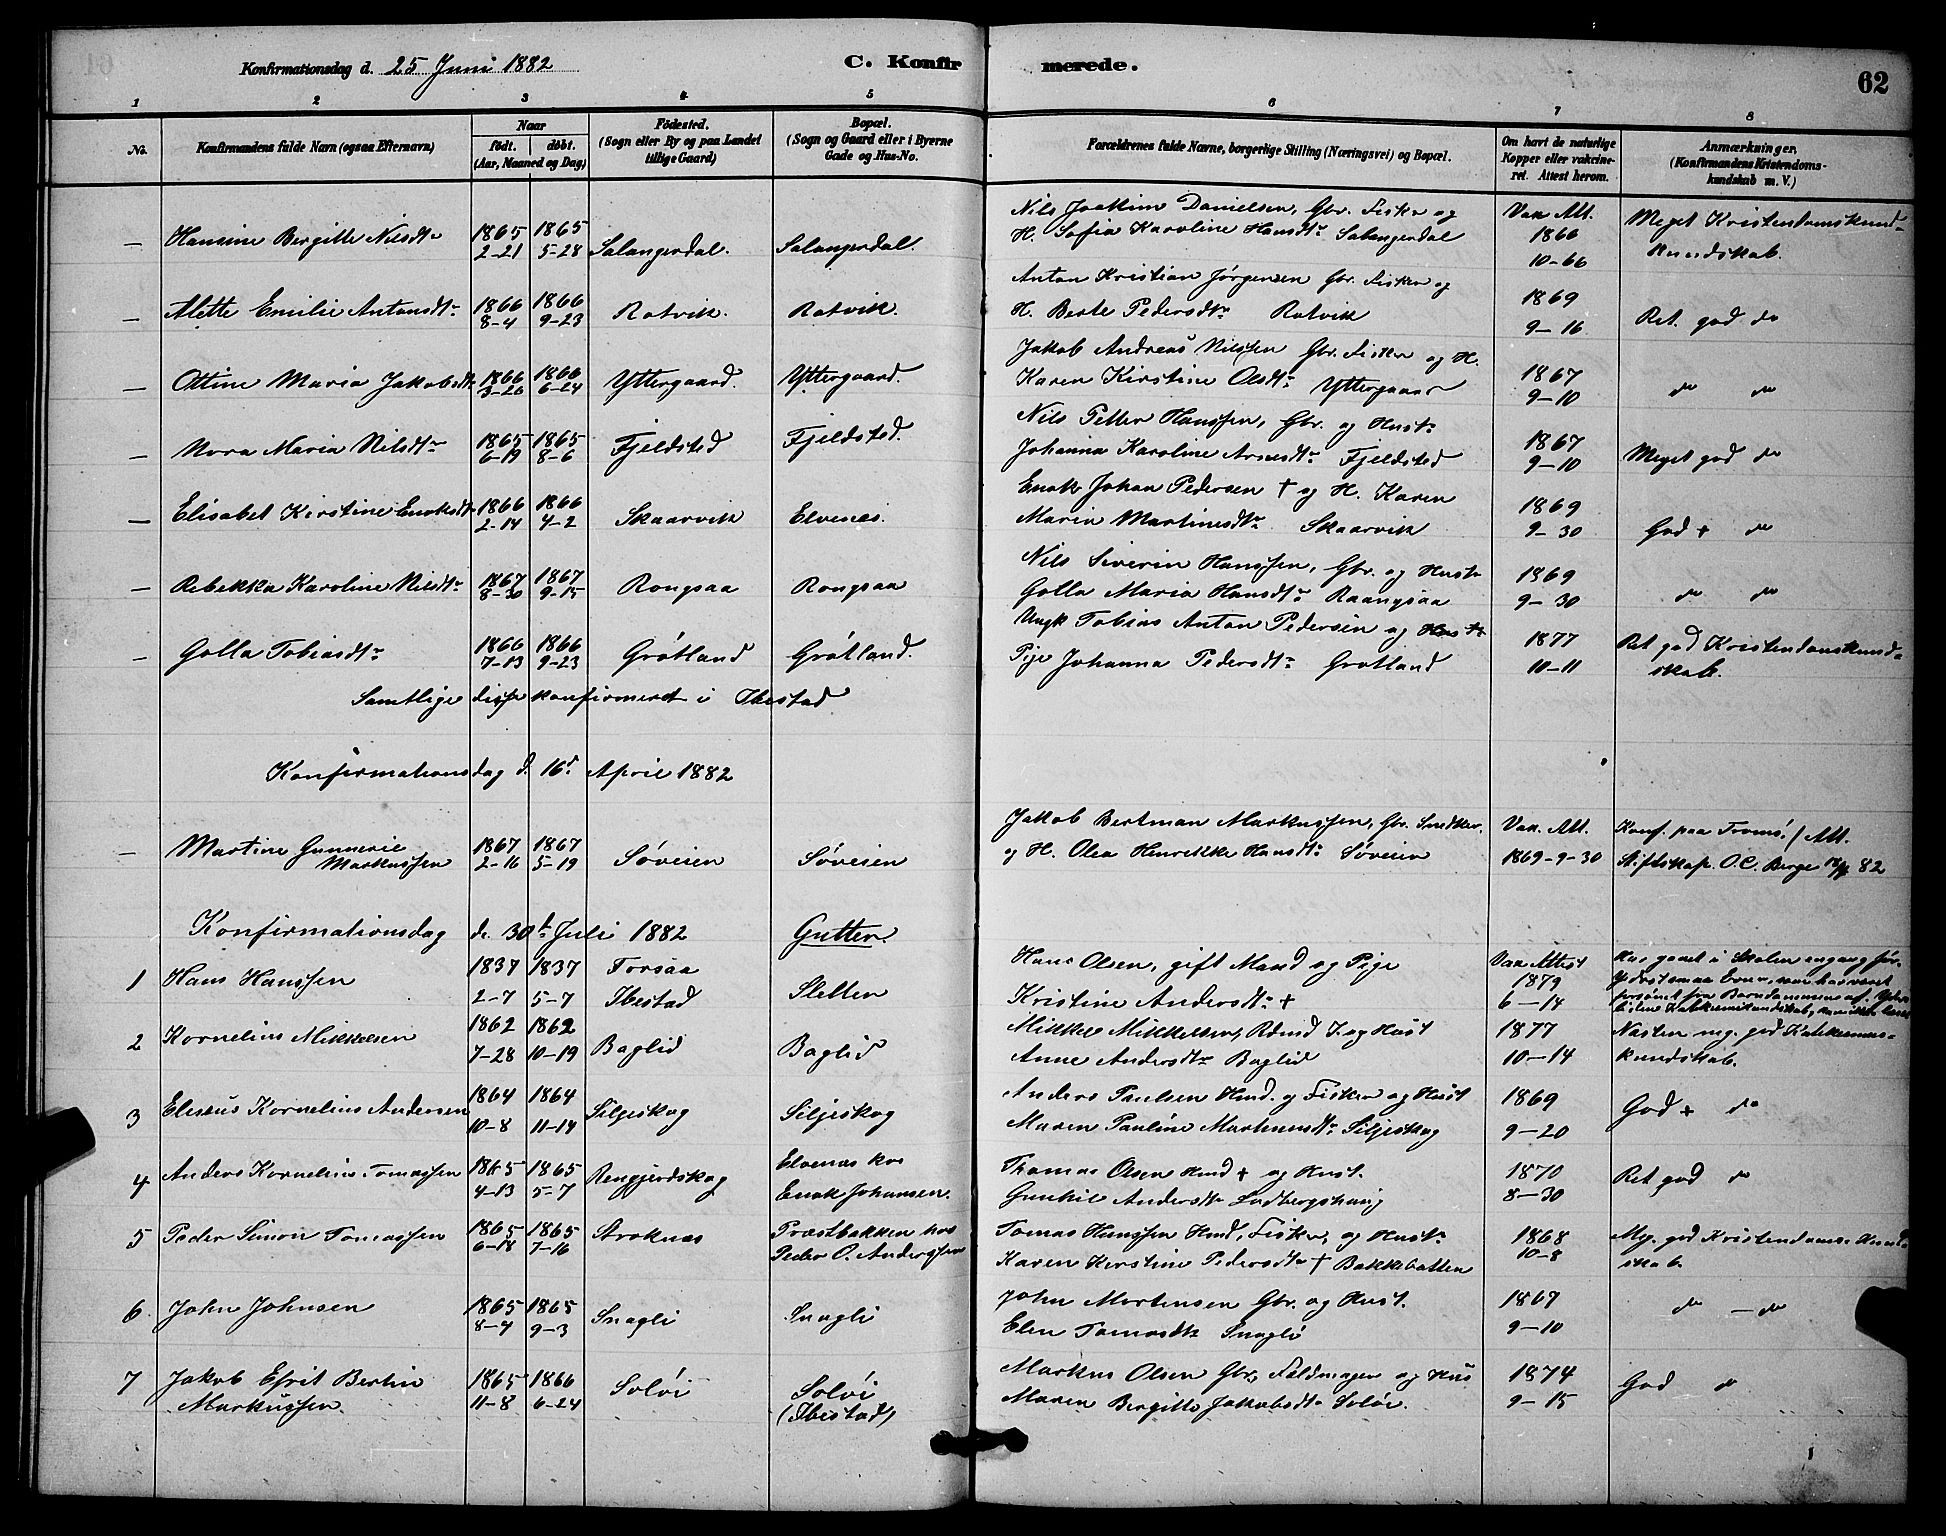 Konfirmationsdag d. 25 Juni 1882
C. Konfirmerede.
62
1 2 3 4 5 6 7 8
No.
Konfirmandens fulde Navn (ogsaa Efternavn)
Naar
födt. döbt.
(Aar, Maaned og Dag)
Födested.
(Sogn eller By og paa Landet
tillige Gaard)
Bopæl.
(Sogn og Gaard eller i Byerne
Gade og Hus-No.
Forældrenes fulde Navne, borgerlige Stilling (Næringsvei) og Bopæl.
Om havt de naturlige
Kopper eller vakcine-
ret. Attest herom.
Anmærkninger.
(Konfirmandens Kristendoms-
kundskab m. V.)
— Hansine Bergitte Nilsdtr 1865 2-21 1865 5-28 Salangerdal. Salangerdal.
Nils Joakim Danielsen, Gbr. Fisker og
H. Sofia Karoline Hansdtr Salangerdal
Vax. Att. 1866 10-66
Meget Kristendomskund-
kundskab.
— Alette Emilie Antonsdtr 1866 8-4 1866 9-23 Rotvik. Rotvik.
Anton Kristian Jørgensen Gbr. Fisker og
H. Berte Pedersdtr Rotvik
1869 9-16
Ret god do
— Ottine Maria Jakobsdtr 1866 3-20 1866 6-24 Yttergaard. Yttergaard.
Jakob Andreas Nilssen Gbr. Fisker og H.
Karen Kirstine Olsdtr Yttergaard
1867 9-10
do do
— Nora Maria Nilsdtr 1865 6-19 1865 8-6 Fjeldsted Fjeldsted.
Nils Petter Hanssen, Gbr. og Hustr
Johanna Karoline Arnesdtr Fjeldsted
1867 9-10
Meget god do
— Elisabet Kirstine Enoksdtr 1866 2-14 1866 4-2 Skaarvik Elvenes.
Enok Johan Pedersen † og H. Karen
Maria Martinesdtr Skaarvik
1869 9-30
God + do
— Rebekka Karoline Nilsdtr 1867 8-30 1867 9-15 Rongsaa Rongsaa
Nils Severin Hanssen, Gbr. og Hustr
Golla Maria Hansdtr Raangsaa
1869 9-30
do do
— Golla Tobiasdtr 1866 7-13 1866 9-23 Grötland Grötland.
Ungk Tobias Anton Pedersen og Hustr
Pige Johanna Pedersdtr Grotland
1877 10-11
Ret god Kristendomskund-
skab.
Samtlige disse konfirmeret i Ibestad
Konfirmationsdag d. 16d April 1882
— Martine Gunnerie Markussen 1867 2-16 1867 5-19 Søveien Søveien
Jakob Bertman Markussen, Gbr. Snedker.
og H. Olea Henrikke Hansdtr Søveien
Vax. Att. 1869-9-30
Konf. paa Tromsö / Att.
Stiftskap. O.C. Berge 82
Konfirmationsdag d. 30t Juli 1882 Gutter.
1 Hans Hanssen 1837 2-7 1837 5-7 Forsaa Ibestad Sletten
Hans Olsen, gift Mand og Pige
Kristine Andersdtr +
Vax Attest 1879 6-14
Har gaaet i Skolen
2 Kornelius Mikkelsen 1862 7-28 1862 10-19 Baglid Baglid
Mikkel Mikkelsen, og Hust
Anne Andersdtr Baglid
1877 10-14
Næsten mg. god
kundskab.
3 Eleseus Kornelius Andersen 1864 10-8 1864 11-14 Siljeskog Siljeskog
Anders Paulsen Hmd. og Fisker og Hust
Maren Pauline Martinusdtr Siljeskog
1869 9-20
God + do
4 Anders Kornelius Tomassen 1865 4-13 1865 5-7 Rengjerdskog Elvenes hos Enok Johansen.
Thomas Olsen Hmd + og Hust.
Gunhil Andersdtr Lundbergshaug
1870 8-30
Ret god do
5 Peder Simon Tomassen 1865 6-18 1865 7-16 Stroknes Præstbakken hos Peder O. Anderssen
Tomas Hanssen Hmd, Fisker, og Hustr
Karen Kerstine Pedersdtr † Bakkebotten
1868 10-8
Mg. god Kristendoms-Kund-
skab
6. John Johnsen 1865 8-4 1865 9-3 Snagli Snagli
John Mortensen Gbr. og Hust.
Elen Tomasdtr Snagli
1867 9-10
do — do
7 Jakob Efrit Bertin Markussen. 1865 11-8 1866 6-24 Soløi Soløi (Ibestad)
Markus Olsen Gbr, og Hus
Maren Bergitte Jakobsdtr Soløi.
1874 9-15
God do